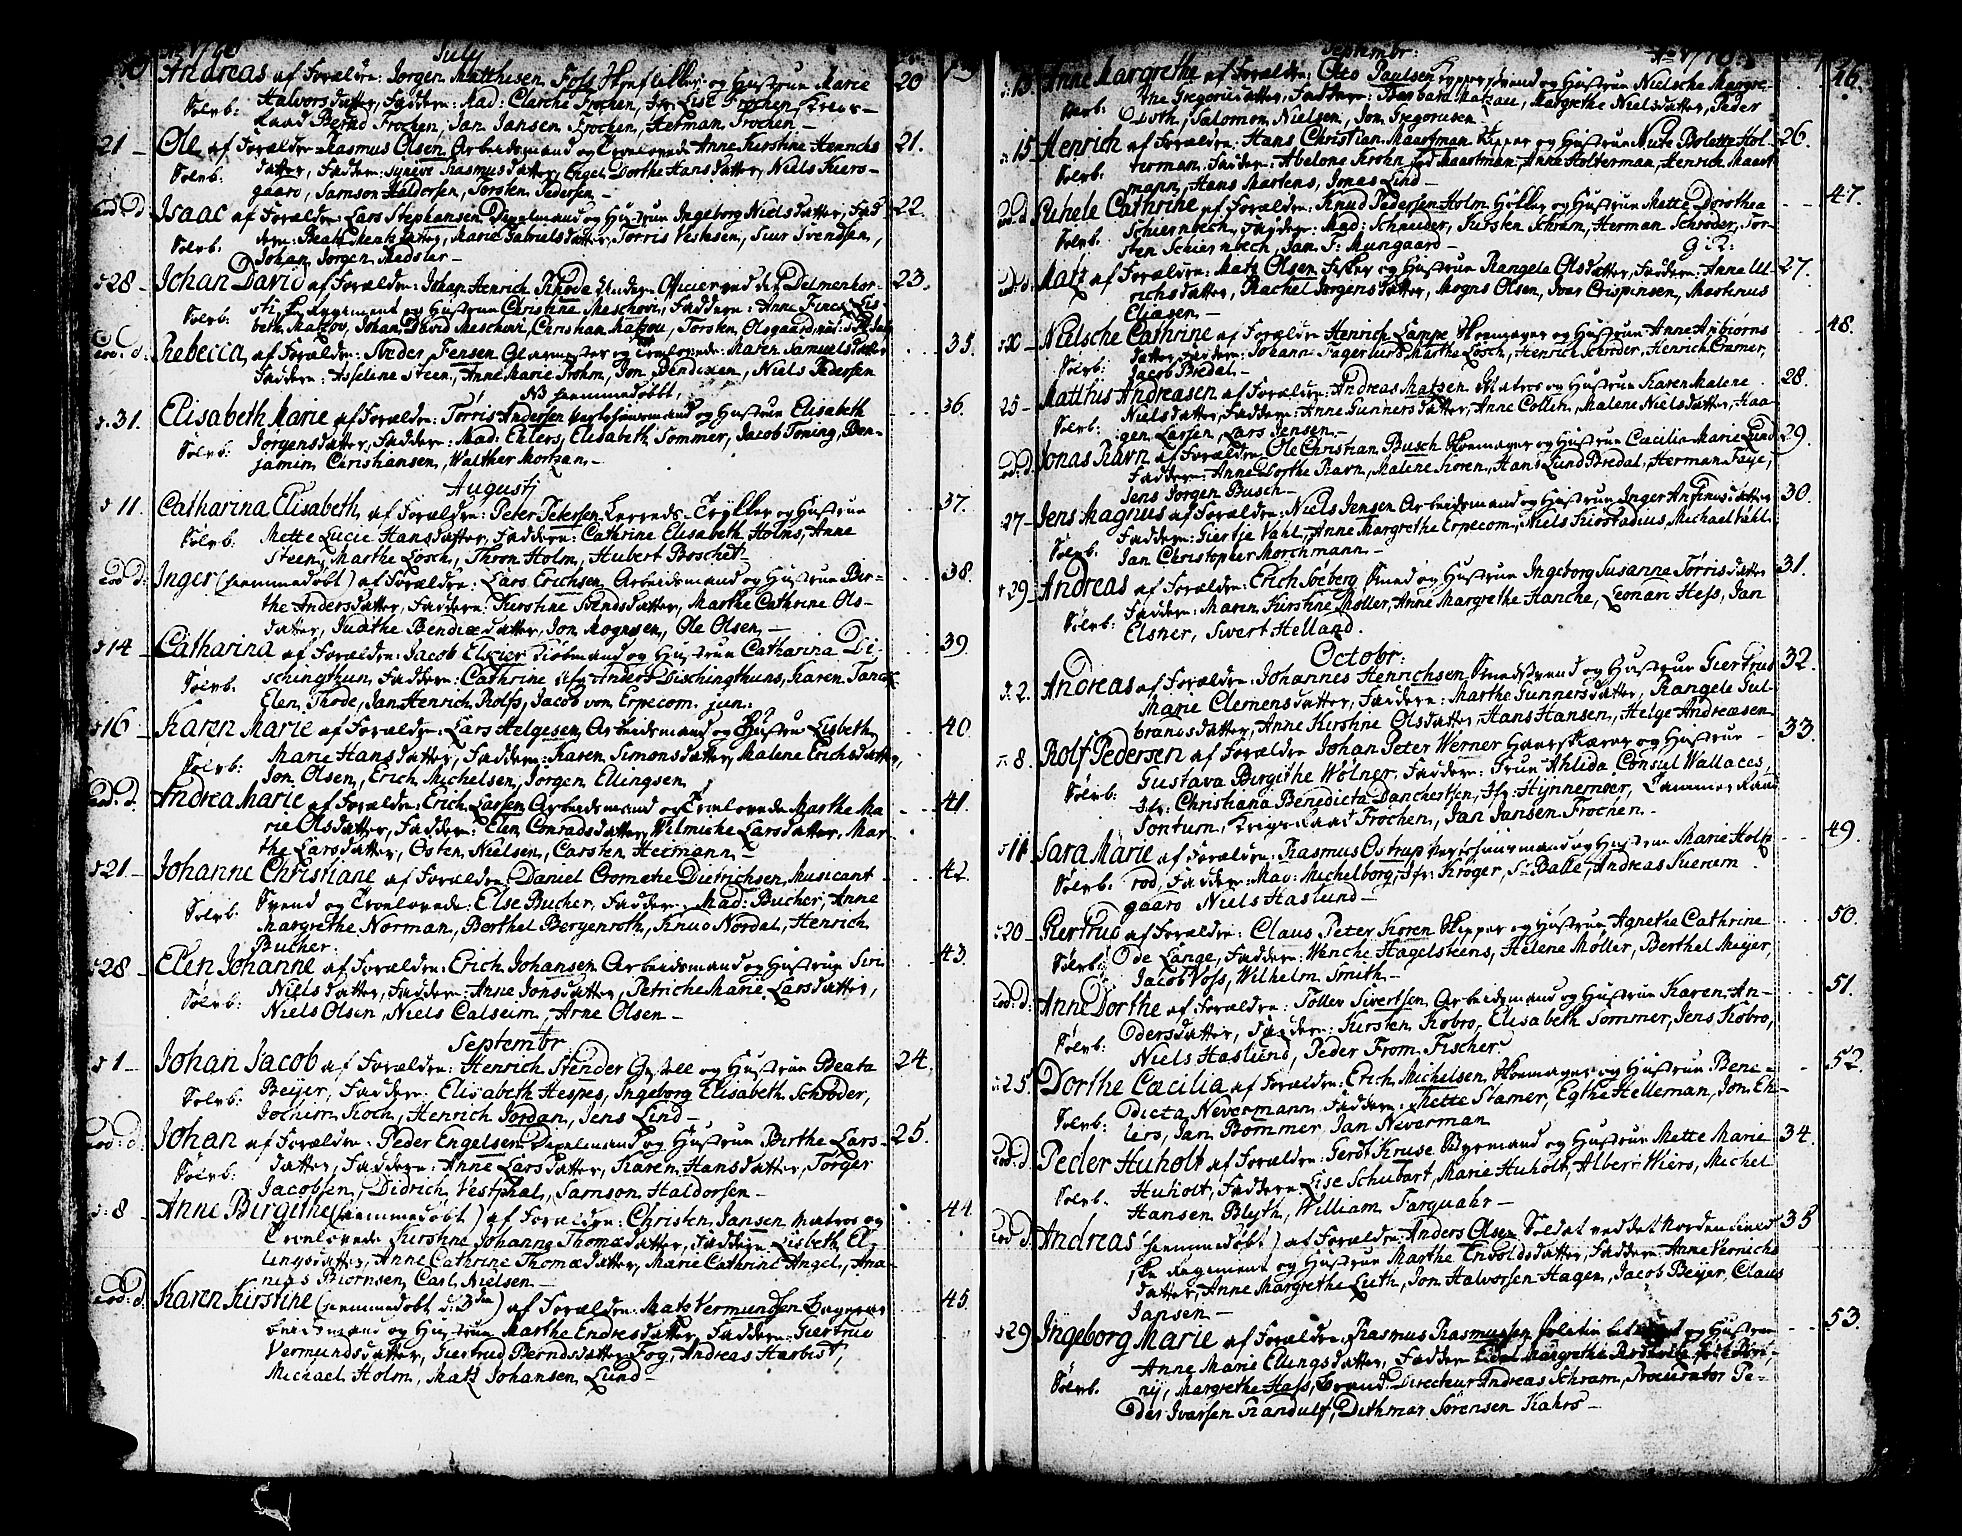 July
Andreas af Forældre: Jørgen Matthisen og Hustrue Marie 20
Sølvb: Halvorsdatter, Faddere: Mad: Clarche Frochen, Lise Frochen,
Raad Bernd Frochen, Jan Jansen Frochen, Herman Frochen
21 Ole af Forældre Rasmus Olsen Arbeidsmand og Trolovede Anne Kirstine Henrichs 21.
Sølvb: datter, Faddere: Synneve Rasmusdatter, Engel Dorthe Hansdatter, Niels Kiers-
gaard, Samson Haldorsen, Torsten Pedersen
eod: d Isaac af Forældre: Lars Stephansen og Hustrue Ingeborg Nielsdatter, Fad 22.
Sølvb: dere: Beate, Marie Gabrielsdatter, Torris Vestesen, Siur Svendsen,
Johan Jørgen Madslar
28 Johan David af Forældre: Johan Henrich Rhode Under Officier ved det Delmenhor- 23.
Sølvb: sti Regement og Hustrue Christine Meschovi, Faddere: Anne Finch, Elis-
beth Matzov, Johan David Meschovi, Christian Matzou, Torsten Olsgaard
eod: d. Rebecca, af Forældre: Neder Jensen og Trolovede: Maren Samuelsdatter 35.
Faddere: Asselene Steen, Anne Marie Prohm, Jon Bendixen, Niels Pedersen
NB hiemmedøbt,
31. Elisabeth Marie af Forældre: Torris Andersen og Hustrue Elisabeth 36.
Sølvb: Jørgensdatter, Faddere: Mad: Ehlers, Elisabeth Sommer, Jacob Toning, Ben-
jamin Christiansen, Walther Mortzan
Augustj
11. Catharina Elisabeth, af Forældre: Peter Petersen Lerreds-Trykker og Hustrue 37.
Sølvb: Mette Lucie Hansdatter, Faddere: Cathrine Elisabeth Holms, Anne
Steen, Marthe Losch, Thron Holm, Hubert Boschet
eod d: Inger (hiemmedøbt) af Forældre: Lars Erichsen Arbeidsmand og Hustrue Bir- 38.
the Andersdatter, Faddere: Kirstine Svendsdatter, Marthe Cathrine Ols-
datter, Judithe Bendixdatter, Jon Mognsen, Ole Olsen
14 Catharina af Forældre: Jacob Elzier Kiøbmand og Hustrue Catharina Di- 39.
Sølvb. schingthun, Faddere: Cathrine Anders Dischingthuns, Karen Tanch,
Elen Thode, Jan Henrich Rolfs, Jacob von Erpecom jun:
16 Karen Marie af Forældre: Lars Helgesen, Arbeidsmand og Hustrue Lisbeth 40.
Sølvb: Marie Hansdatter, Faddere: Karen Simonsdatter, Malene Erichsdatter,
Jon Olsen, Erich Michelsen, Jørgen Ellingsen
eod: d. Andrea Marie af Forældre: Erich Larsen Arbeidsmand og Trolovede Marthe Ma 41.
rie Olsdatter, Faddere: Elen Conradsdatter, Wilmiche Larsdatter, Mar-
the Larsdatter, Osten Nielsen, Carsten Hermann
21 Johanne Christiane af Forældre: Daniel Cromete Dietrichsen, Musicant 42.
Sølvb: Svend og Trolovede: Else Bucher, Faddere: Mad: Bucher, Anne
Margrethe Norman, Berthel Bergenroth, Knud Nordal, Henrich
Bucher.
28 Elen Johanne af Forældre: Erich Johansen Arbeidsmand og Hustrue Siri 43.
Sølvb: Nielsdatter, Faddere: Anne Jonsdatter, Petriche Marie Larsdatter,
Niels Olsen, Niels Calseim, Arne Olsen
Septembr:
1 Johan Jacob af Forældre: Henrich Stender og Hustrue Beata 24.
Sølvb: Beijer, Faddere: Elisabeth Hespes, Ingeborg Elisabeth Schrøder,
Jochim Koch, Henrich Jordan, Jens Lind
eod: d. Johan af Forældre: Peder Engelsen og Hustrue Birthe Lars- 25.
Sølvb: datter, Faddere: Anne Larsdatter, Karen Hansdatter, Torger
Jacobsen, Didrich Vestphal, Samson Haldorsen
8 Anne Birgithe (hiemmedøbt) af Forældre: Christen Jansen Matros og 44.
Trolovede Kirstine Johanne Thomædatter, Faddere: Lisbeth El-
lingsdatter, Anne Cathrine Thomædatter, Marie Cathrine Angel, Ana-
nias Biørnsen, Carl Nielsen
eod: d. Karen Kirstine (hiemmedøbt) af Forældre: Mats Vermundsen 45.
og Hustrue Marthe Endresdatter, Faddere: Giertrue
Vermundsdatter, Giertrud Berndsdatter Fog, Andreas Harbist,
Michael Holm, Matz Johansen Lund
Septembr: Ao 1770
13. Anne Margrethe af Forældre: Otto Paulsen og Hustrue Nielsche Margre- 46.
Sølvb: the Gregoriidatter, Faddere: Barbara Matzau, Margrethe Nielsdatter, Peder
Døth, Salomon Nielsen, Jon Gregoriusen
15 Henrich af Forældre: Hans Christian Maartman Skipper og Hustrue Bolette Hol- 26.
Sølvb: terman, Faddere: Abelone Krohn fød Maartman, Anne Holterman, Henrich Maart
mann, Hans Martens, Jonas Lind
eod: d. Cathrine af Forældre: Knud Pedersen Holm Høkker og Hustrue Mette Dorothea 47.
Sølvb: Schiernbech, Faddere: Mad: Schneider, Kirsten Schram, Herman Schrøder, Tor-
sten Schiernbech, Jan Mungaard
eod: d: Matz af Forældre: Matz Olsen Fisker og Hustrue Rangele Olsdatter, Faddere: Anne Ul- 27.
richsdatter, Rachel Jørgensdatter, Mogns Olsen, Iver Crispinsen, Martinus
Eliasen
Nielsche Cathrine af Forældre Henrich Lampe Skomager og Hustrue Anne Anbiørns 48.
Sølvb: datter, Faddere: Johann Fagerlund, Marthe Losch, Henrich Schrøder, Henrich Cramer,
Jacob Bredal
25 Matthis Andreasen af Forældre: Andreas Matzen Matros og Hustrue Karen Malene 28.
Sølvb: Nielsdatter, Faddere: Anne Gunnersdatter, Anne Collin, Malene Nielsdatter, Haa-
gen Larsen, Lars Jensen
eod: d. Jonas Ravn af Forældre Ole Christian Busch Skomager og Hustrue Cæcilia Marie Lund 29.
Faddere: Anne Dorthe Ravn, Malene Koren, Hans Lund Bredal, Herman Faye,
Jens Jørgen Busch
27 Jens Magnus af Forældre: Niels Jensen Arbeidsmand og Hustrue Inger Anfinusdatter 30.
Sølvb. Faddere: Giertje Vahl, Anne Margrethe Erpecom, Niels Kierstadius, Michael Vahl,
Jan Christopher Morchmann
29 Andreas af Forældre: Erich Søeberg Smed og Hustrue Ingeborg Susanne Torrisdatter 31.
Sølvb: Faddere: Maren Kirstine Møller, Anne Margrethe Hanche, Leonari Hess, Jan
Elsner, Sivert Helland.
Octobr:
2. Andreas af Forældre: Johannes Henrichsen Smedsvend og Hustrue Giertrud 32.
Marie Clemensdatter, Faddere: Marthe Gunnersdatter, Rangele Gul-
brandsdatter, Anne Kirstine Olsdatter, Hans Hansen, Helge Andreæsen
8. Rolf Pedersen af Forældre Johan Peter Werner og Hustrue 33.
Sølvb: Gustava Birgithe Wølner, Faddere: Frue Ahlida Consul Wallaces,
Jfr: Christiana Benedicta Danchertsen, Jfr: Hynnemøer, Cammer Raad
Fontum, Krigs Raad Frochen, Jan Jansen Frochen
11 Sara Marie af Forældre: Rasmus Ostrup og Hustrue Marie Holte 49.
Sølvb. rød, Faddere: Mad: Michelborg, Jfr: Krøger, Sr Balle, Andreas
gaard Niels Haslund
20 Giertrud af Forældre: Claus Peter Koren Skipper og Hustrue Agnethe Cathrine 50.
Sølvb: Ode Lange, Faddere: Wenche Hagelsteens, Helene Møller, Berthel Meyer,
Jacob Voss, Wilhelm Smith
eod: d: Anne Dorthe af Forældre: Toller Sivertsen, Arbeidsmand og Hustrue Karen An- 51.
Sølvb: dersdatter, Faddere: Kirsten Kobro, Elisabeth Sommer, Jens Kobro,
Niels Haslund, Peder From Fischer
25. Dorthe Cæcilia af Forældre: Erich Michelsen, Skomager og Hustrue Bene- 52.
Sølvb: dicta Nevermann, Faddere: Mette Stamer, Egthe Helleman, Jon Eh-
lers, Jan Bommer, Jan Neverman
eod: d. Peder Huholt af Forældre: Gerdt Kruse Styrmand og Hustrue Mette Marie 34.
Sølvb. Huholt, Faddere: Lise Schubart, Marie Huholt, Albert Wiers, Michel
Hansen Blyth, William Farquahr
eod: d. Andreas (hiemmedøbt) af Forældre: Anders Olsen Soldat ved det Nordenfield 35
ske Regiment og Hustrue Marthe Envoldsdatter, Faddere: Anne Verniche
datter, Anne Margrethe Luth, Jon Halvorsen Hagen, Jacob Beijer, Claus
Jansen
29 Ingeborg Marie af Forældre: Rasmus Rasmussen Politie og Hustrue 53.
Sølvb. Anne Marie Ellingsdatter, Faddere: Edel Margrethe
nij, Margrethe Hass, Brand Directeur Andreas Schram, Procurator Pe-
der Ivarsen Randulf, Dithmar Sørensen Kahrs